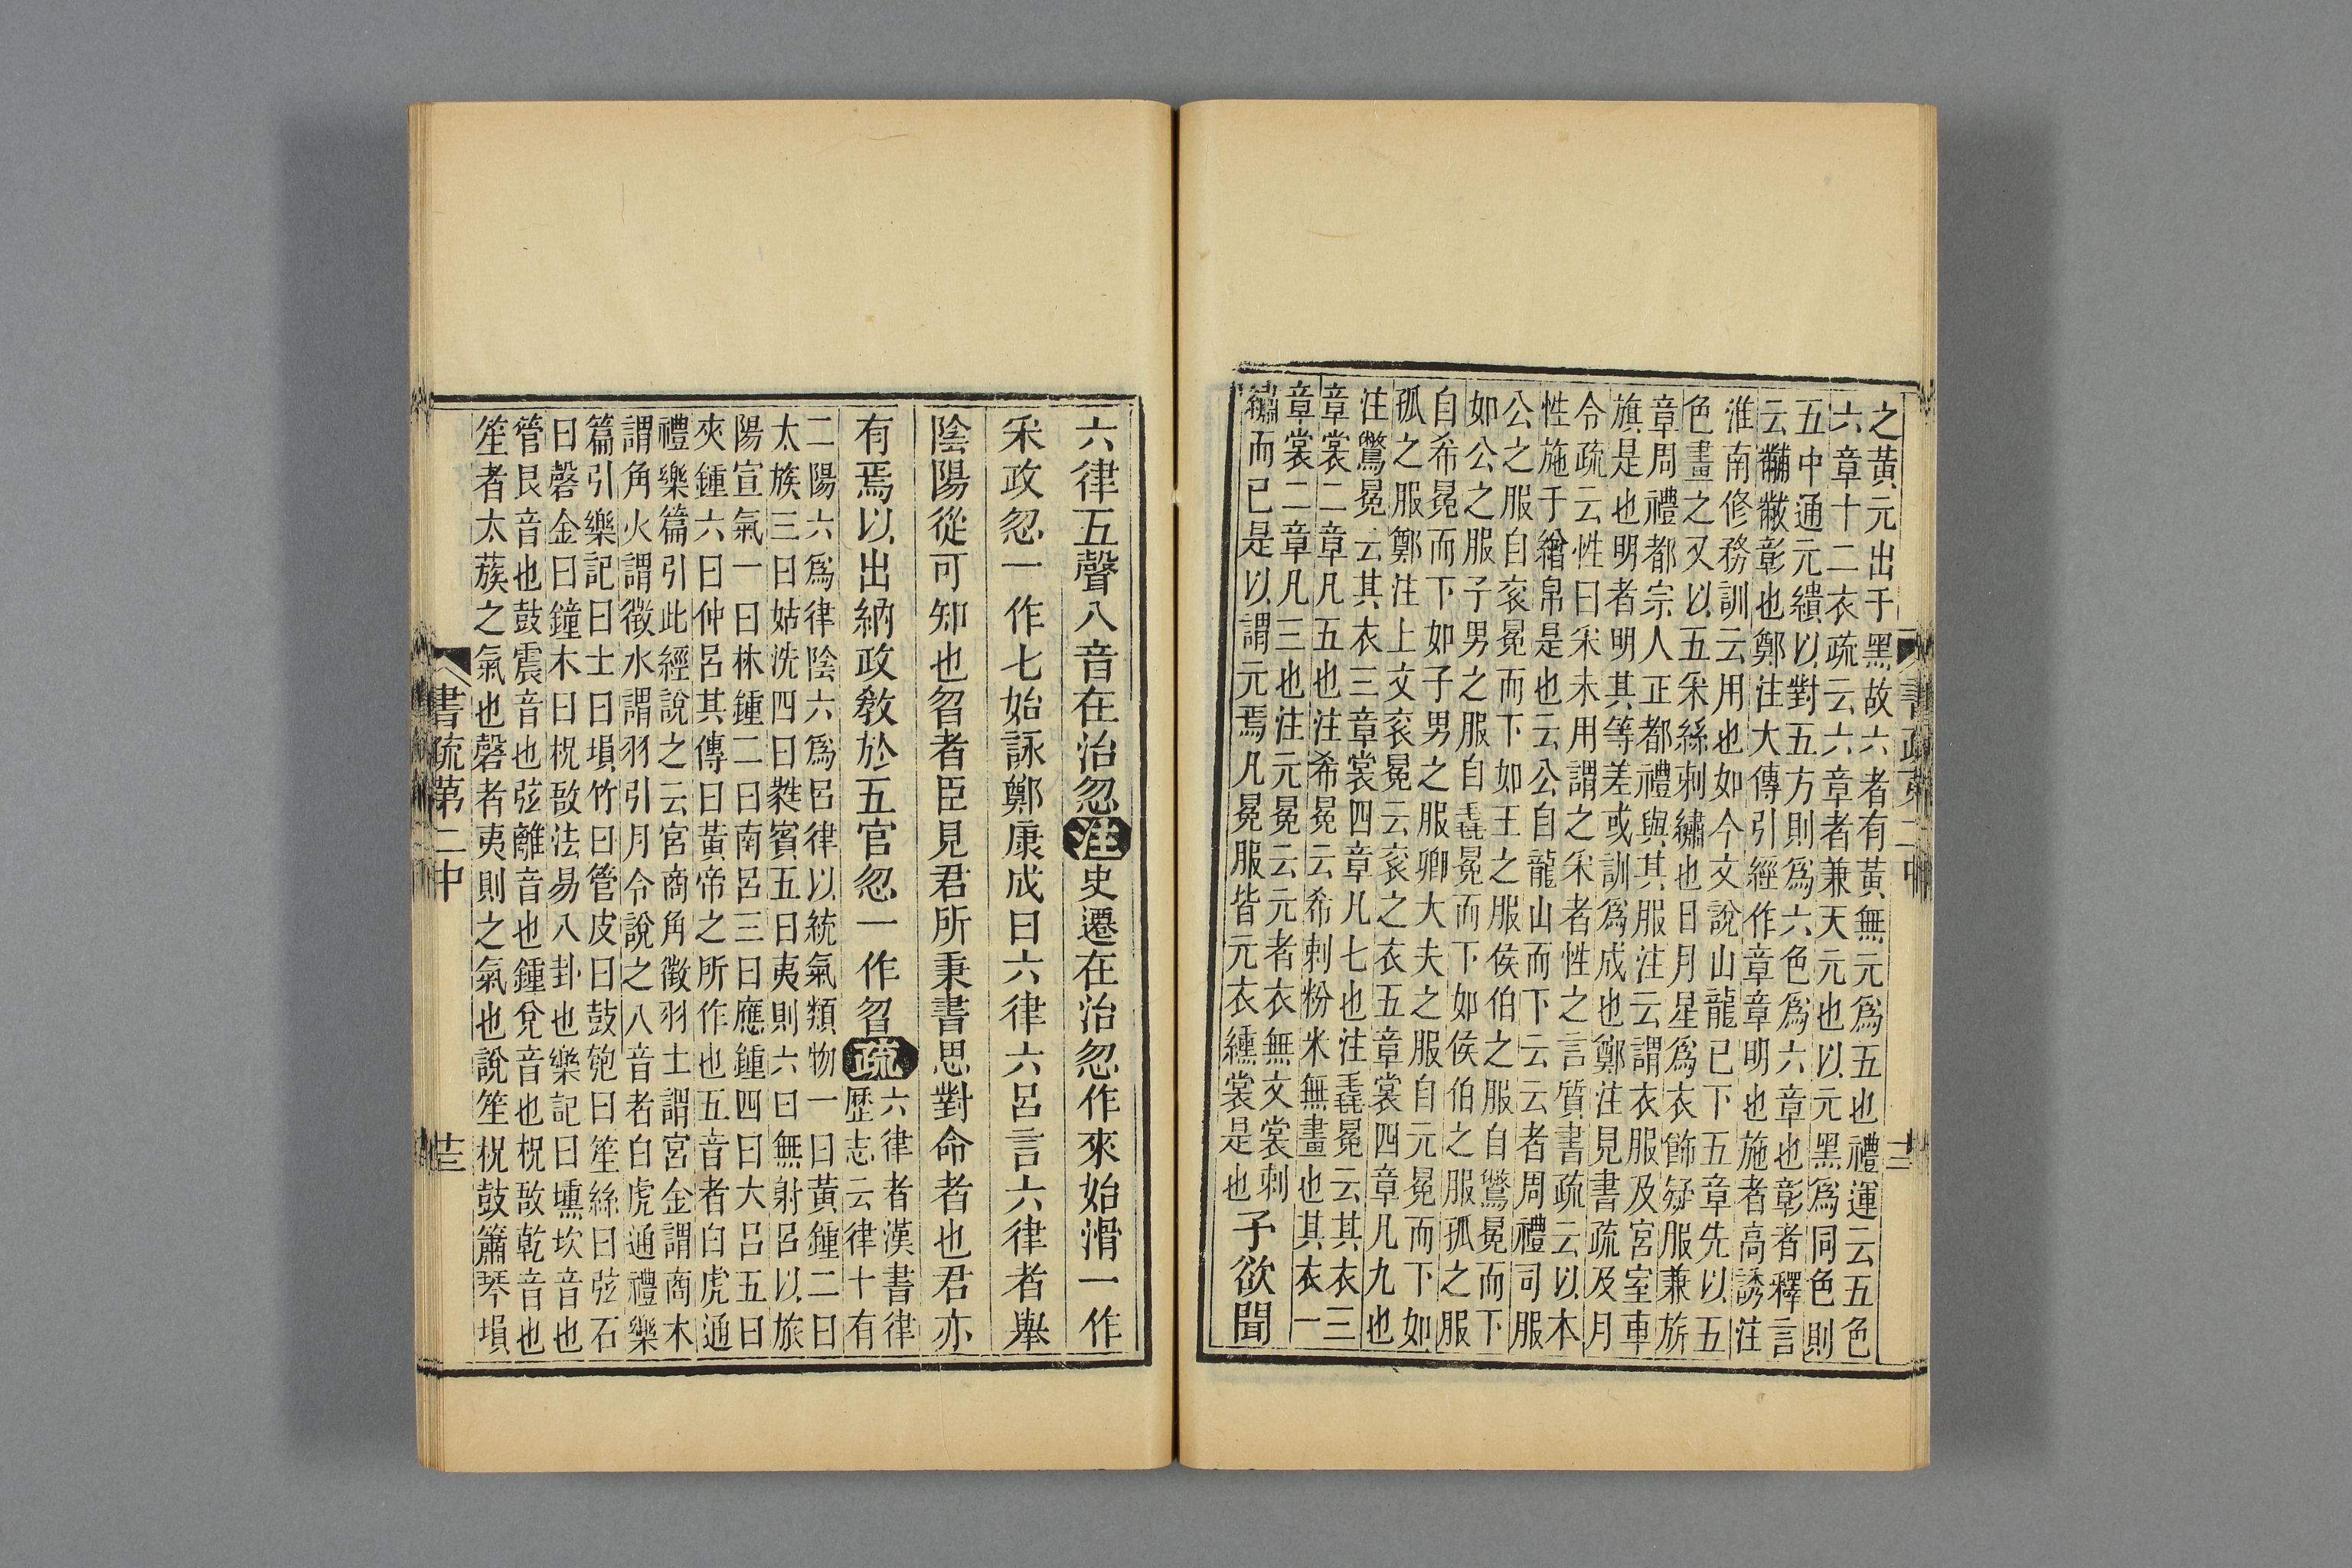 之黃元出于黑故六者有黃無元爲五也禮運云五色
六章十二衣疏云六章者兼天元也以元黑爲同色則
五中通元繢以對五方則爲六色爲六章也彰者釋言
云黼黻彰也鄭注大傳引經作章章明也施者高誘注
淮南修務訓云用也如今文說山龍已下五章先以五
色畫之又以五采絲刺繡也日月星爲衣飾疑服兼旂
章周禮都宗人正都禮與其服注云謂衣服及宮室車
旗是也明者明其等差或訓爲成也鄭注見書疏及月
令疏云性曰采未用謂之采者性之言質書疏云以本
性施于繒帛是也云公自龍山而下云云者周禮司服
公之服自衮冕而下如王之服侯伯之服自鷩冕而下
如公之服子男之服自毳冕而下如侯伯之服孤之服
自希冕而下如子男之服卿大夫之服自元冕而下如
孤之服鄭注上文衮冕云衮之衣五章裳四章凡九也
注鷩冕云其衣三章裳四章凡七也注毳冕云其衣三
章裳二章凡五也注希冕云希刺粉米無畫也其衣一
章裳二章凡三也注元冕云元者衣無文裳刺
黻而已是以謂元焉凡冕服皆元衣纁裳是也
予欲聞
書疏第二中
六律五聲八音在治忽注史遷在治忽作來始滑一作
采政忽一作七始詠鄭康成曰六律六呂言六律者舉
陰陽從可知也曶者臣見君所秉書思對命者也君亦
有焉以出納政敎於五官忽一作曶疏
六律者漢書律
歷志云律十有
二陽六爲律陰六爲呂律以統氣類物一曰黃鍾二曰
太族三曰姑洗四曰蕤賓五曰夷則六曰無射呂以旅
陽宣氣一曰林鍾二曰南呂三曰應鍾四曰大呂五曰
夾鍾六曰仲呂其傳曰黃帝之所作也五音者白虎通
禮樂篇引此經說之云宮商角徵羽土謂宮金謂商木
謂角火謂徵水謂羽引月令說之八音者白虎通禮樂
篇引樂記曰土曰塤竹曰管皮曰鼓匏曰笙絲曰弦石
曰磬金曰鐘木曰柷敔法易八卦也樂記曰壎坎音也
管艮音也鼓震音也弦離音也鍾兌音也柷敔乾音也
笙者太蔟之氣也磬者夷則之氣也說笙柷鼓簫琴塤
書疏第二中